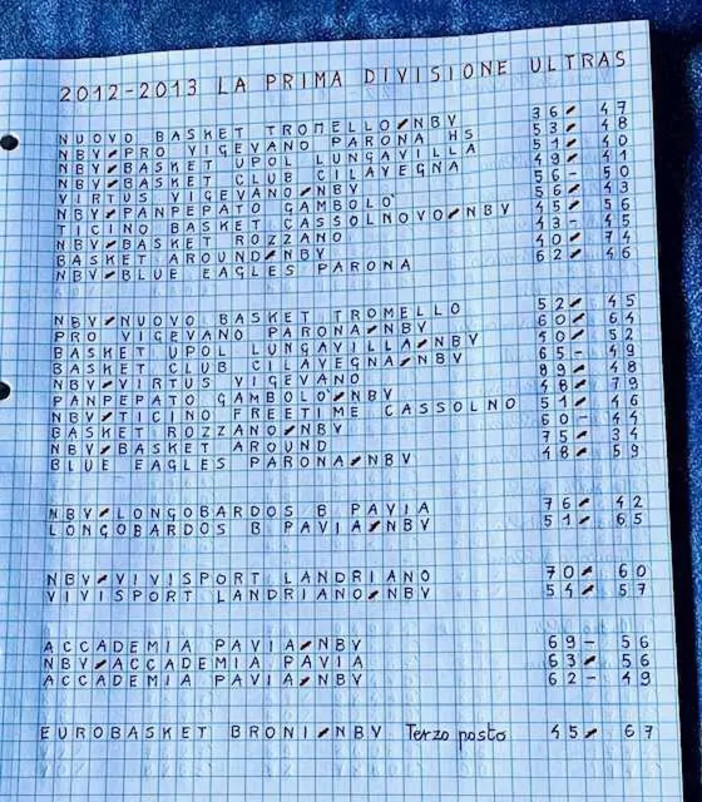 2012-2013 LA PRIMA DIVISIONE ULTRAS
NUOVO BASKET TROMELLO-NBV 36- 47
NBV-PRO VIGEVANO PARONA HS 53- 48
NBV-BASKET UPOL LUNGAVILLA 51- 40
NBV-BASKET CLUB CILAVEGNA 49- 41
VIRTUS VIGEVANO-NBV 56- 50
NBV-PANPEPATO GAMBOLO' 56- 43
TICINO BASKET CASSOLNOVO-NBV 45- 56
NBV-BASKET ROZZANO 43- 45
BASKET AROUND-NBV 40- 74
NBV-BLUE EAGLES PARONA 62- 46
NBV-NUOVO BASKET TROMELLO 52- 45
PRO VIGEVANO PARONA-NBV 60- 64
BASKET UPOL LUNGAVILLA-NBV 40- 52
BASKET CLUB CILAVEGNA-NBV 65- 49
NBV-VIRTUS VIGEVANO 89- 48
PANPEPATO GAMBOLO'-NBV 48- 79
NBV-TICINO FREETIME CASSOLNO 51- 46
BASKET ROZZANO-NBV 60- 44
NBV-BASKET AROUND 75- 34
BLUE EAGLES PARONA-NBV 48- 59
NBV-LONGOBARDOS B PAVIA 76- 42
LONGOBARDOS B PAVIA-NBV 51- 65
NBV-VIVISPORT LANDRIANO 70- 60
VIVISPORT LANDRIANO-NBV 54- 57
ACCADEMIA PAVIA-NBV 69- 56
NBV-ACCADEMIA PAVIA 63- 56
ACCADEMIA PAVIA-NBV 62- 49
EUROBASKET BRONI-NBV Terzo posto 45- 67